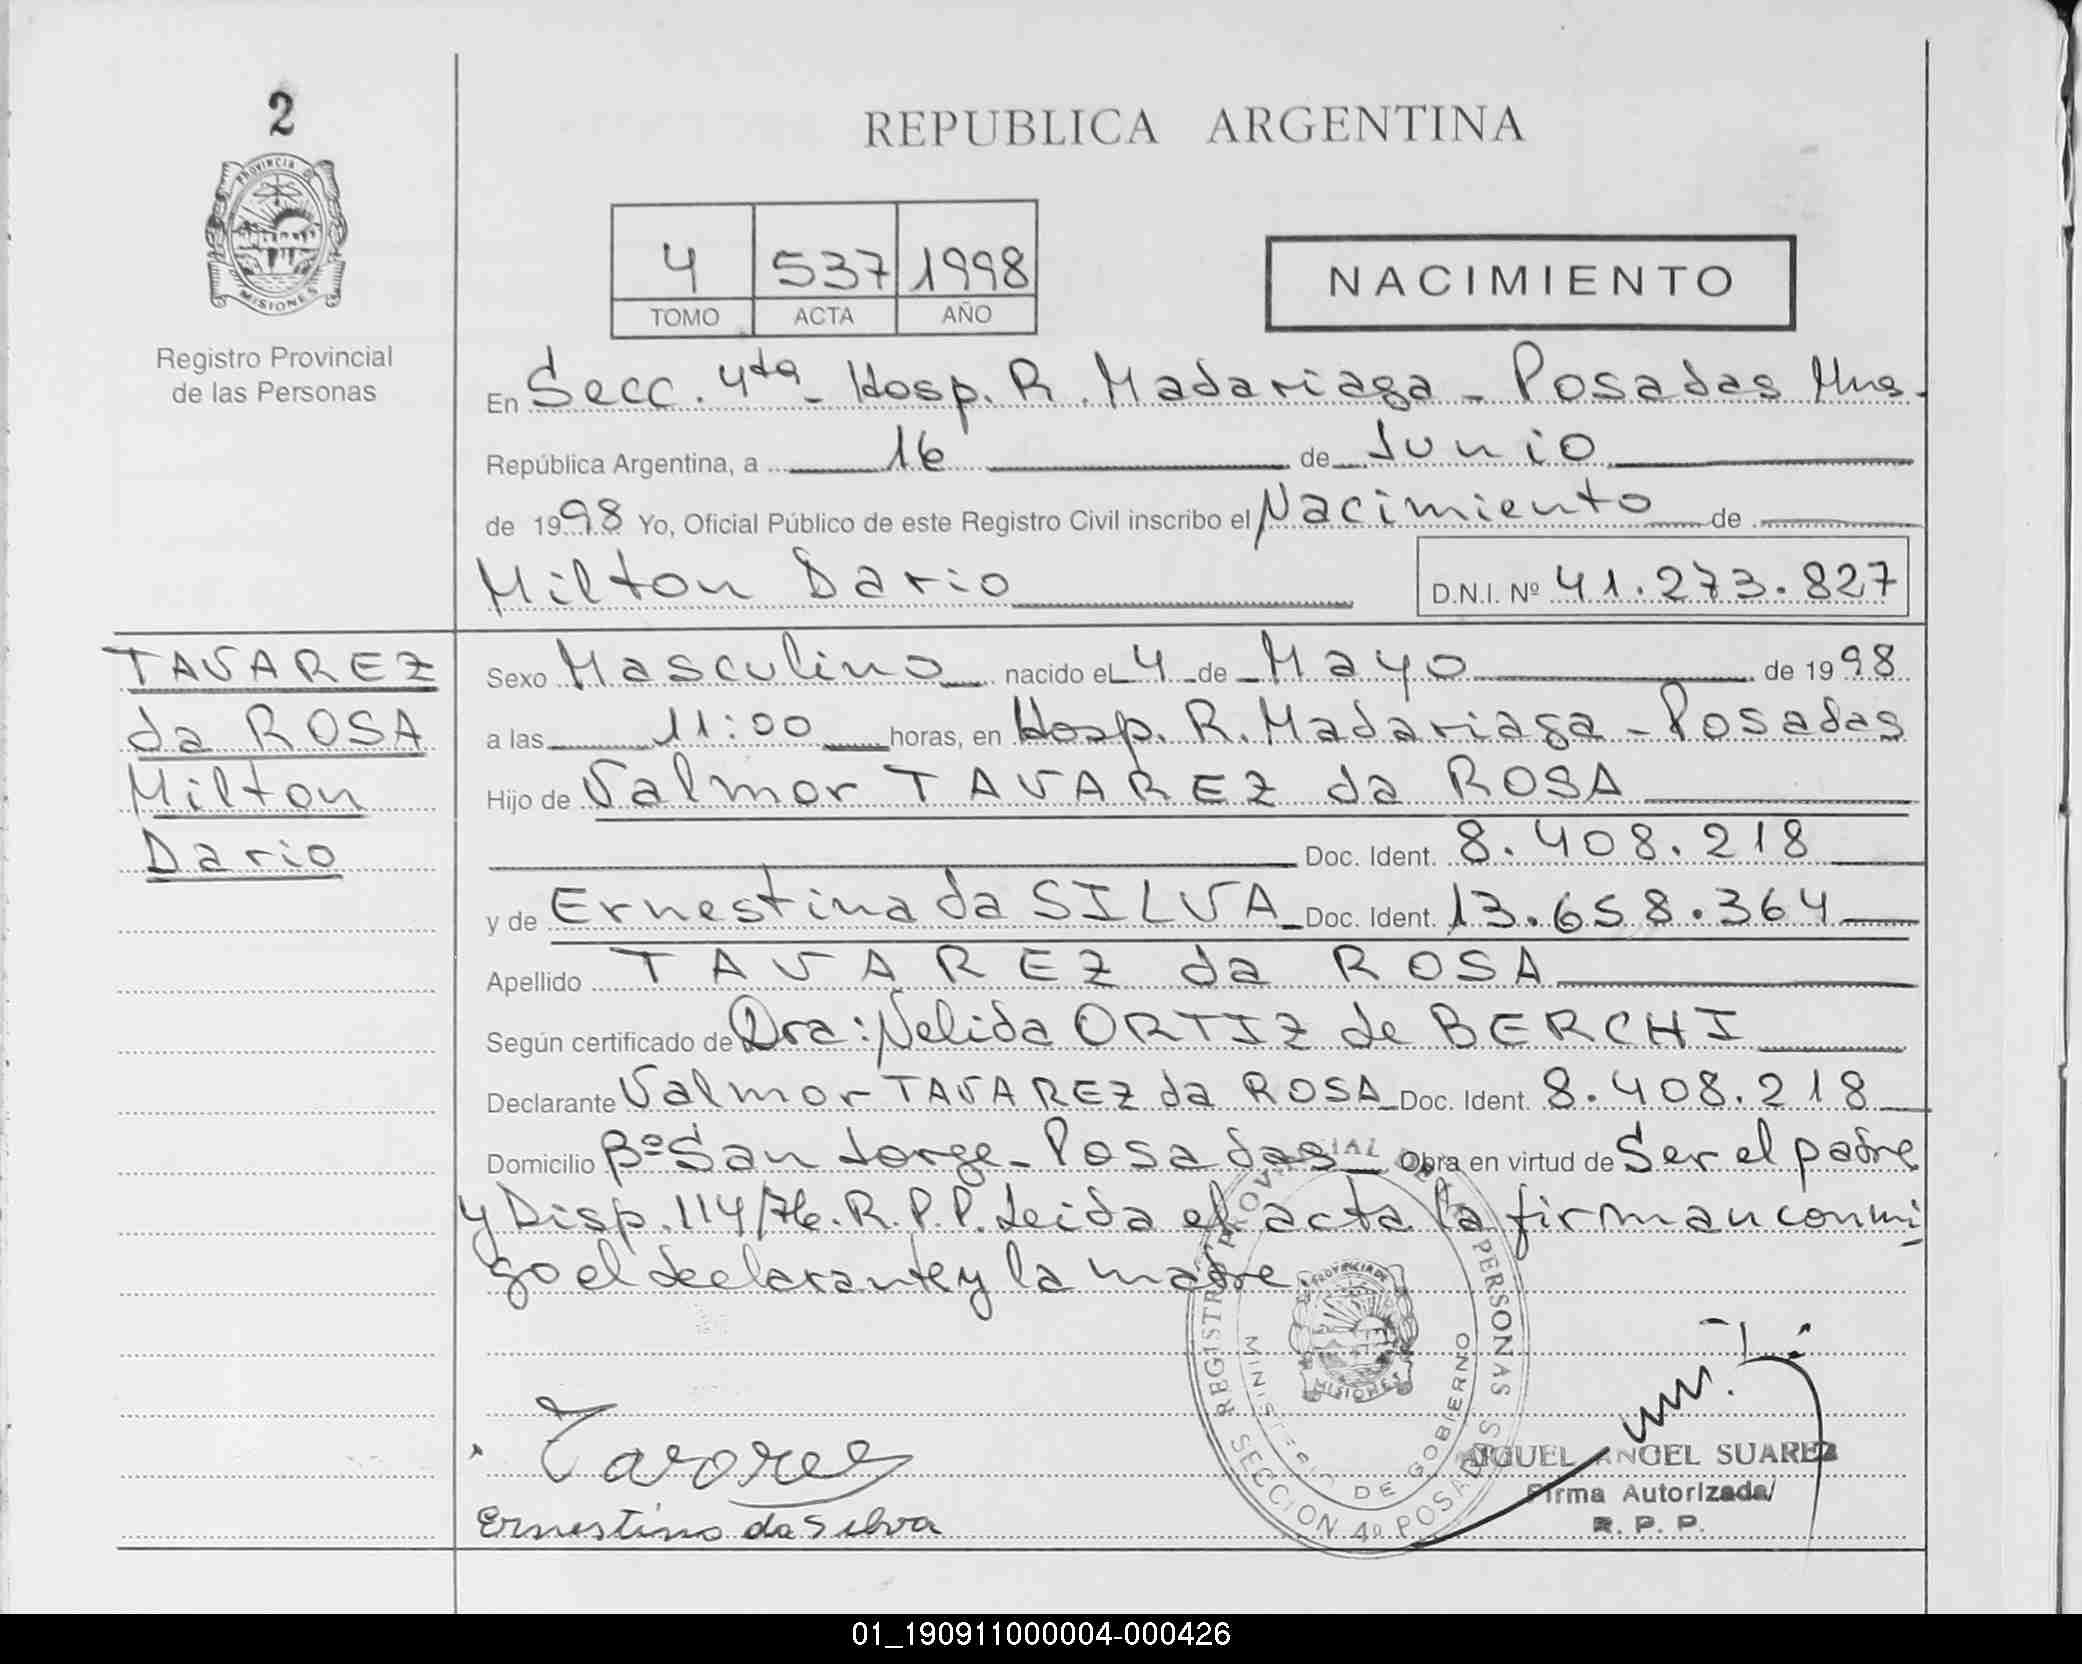 2
PROVINCIA DE
MISIONES
Registro Provincial
de las Personas
REPUBLICA ARGENTINA
4 537 1998
TOMO ACTA AÑO
NACIMIENTO
En Secc. 4ta - Hosp. R. Madariaga - Posadas Mns.
República Argentina, a 16 de Junio
de 1998 Yo, Oficial Público de este Registro Civil inscribo el Nacimiento de
Milton Dario D.N.I. Nº 41.273.827
TAVAREZ
da ROSA
Milton
Dario
Sexo Masculino nacido el 4 de Mayo de 1998
a las 11:00 horas, en Hosp. R. Madariaga - Posadas
Hijo de Valmor TAVAREZ da ROSA
Doc. Ident. 8.408.218
y de Ernestina da SILVA Doc. Ident. 13.658.364
Apellido TAVAREZ da ROSA
Según certificado de Dra: Nelida ORTIZ de BERCHI
Declarante Valmor TAVAREZ da ROSA Doc. Ident. 8.408.218
Domicilio Bº San Jorge - Posadas Obra en virtud de Ser el padre
y Disp. 114/76. R.P.P. Leida el acta la firman conmi
go el declarante y la madre.
REGISTRO PROVINCIAL DE LAS PERSONAS
MINISTERIO DE GOBIERNO
SECCION 4º POSADAS
PROVINCIA DE
MISIONES
Tavarez
Ernestina da Silva
MIGUEL ANGEL SUAREZ
Firma Autorizada
R. P. P.
01_190911000004-000426